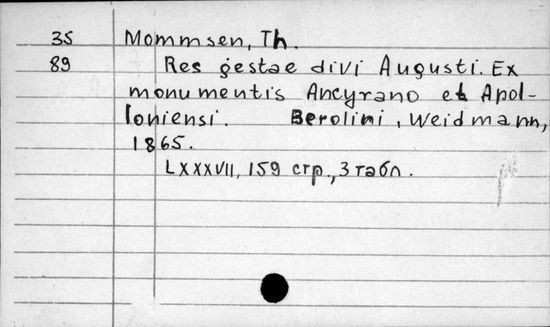 35 Mommsen, Th.
89 Res gestae divi Augusti. Ex
monumentis Ancyrano et Apol-
loniensi. Berolini, Weidmann,
1865.
LXXXVII, 159 стр., 3 табл.